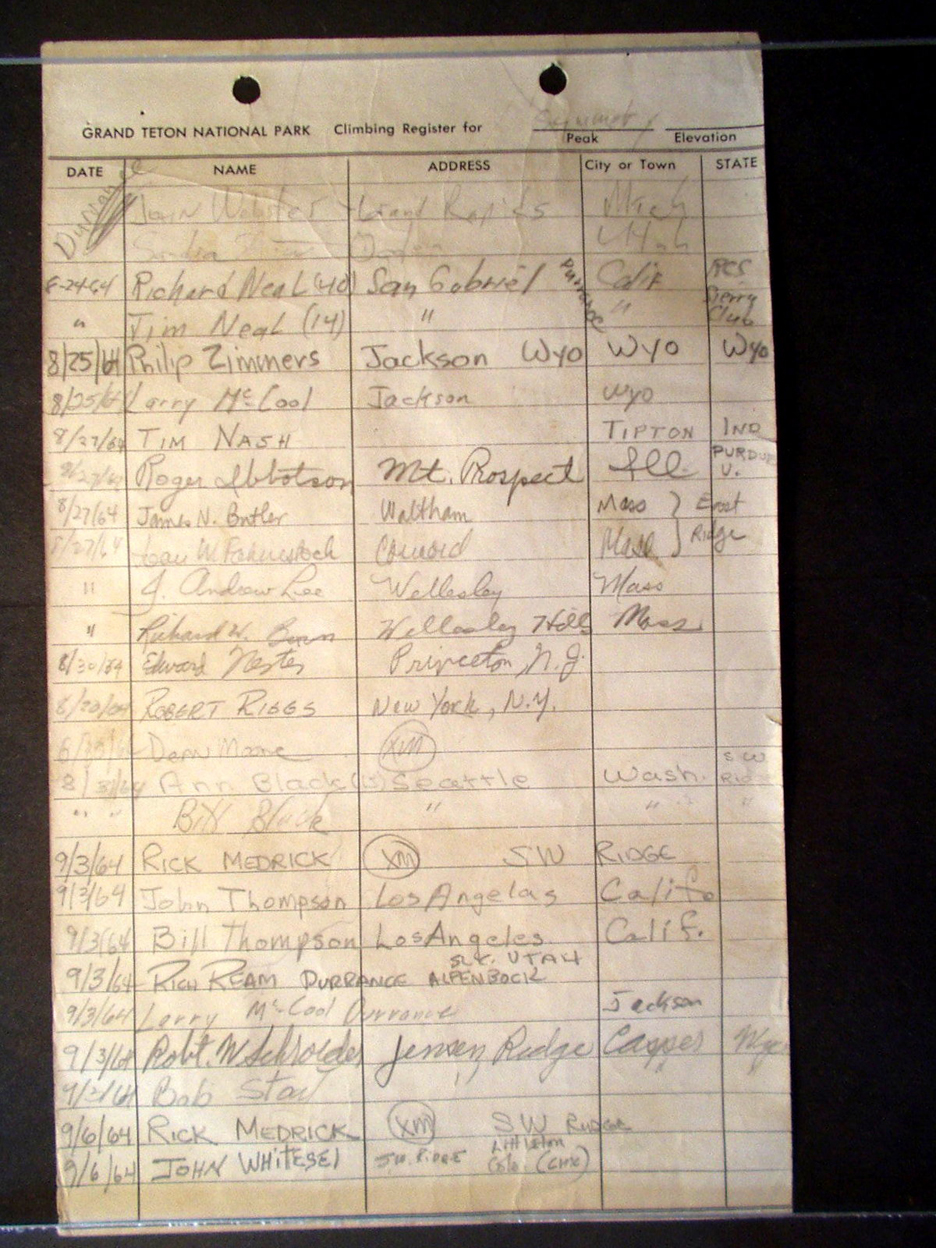 GRAND TETON NATIONAL PARK Climbing Register for Symmetry
Peak Elevation
DATE NAME ADDRESS City or Town STATE
Durrance John Webster Grand Rapids Mich
Sandra Ogden Utah
8-24-64 Richard Neal (40) San Gabriel Durrance Calif RCS
" Tim Neal (14) " " Sierra Club
8/25/64 Philip Zimmers Jackson Wyo Wyo Wyo
8/25/64 Larry McCool Jackson Wyo
8/27/64 TIM NASH TIPTON IND
8/27/64 Roger Ibbotson Mt. Prospect Ill PURDUE U.
8/27/64 James N. Butler Waltham Mass } East
8/27/64 Fahnestock Concord Mass } Ridge
" J. Andrew Lee Wellesley Mass
" Richard W. Wellesley Hills Mass
8/30/64 Edward Nester Princeton, N.J.
8/30/64 ROBERT RIGGS New York, N.Y.
Dean Moore XM
8/31/64 Ann Black Seattle Wash. SW RIDGE
" " Bill Black " " "
9/3/64 RICK MEDRICK XM SW RIDGE
9/3/64 John Thompson Los Angelas Calif.
9/3/64 Bill Thompson Los Angeles Calif.
SLC. UTAH
9/3/64 RICH REAM DURRANCE ALPENBOCK
9/3/64 Larry McCool Durrance Jackson
9/3/64 Robt. W. Schroeder Jensen Ridge Casper Wyo
9/3/64 Bob "
9/6/64 RICK MEDRICK XM SW RIDGE
9/6/64 JOHN WHITESEL SW. RIDGE Littleton Colo. (CMC)